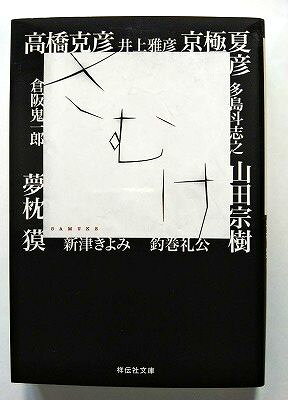 高橋克彦 井上雅彦 京極夏彦
倉阪鬼一郎
多島斗志之
さむけ
SAMUKE
夢枕獏
山田宗樹
新津きよみ 釣巻礼公
祥伝社文庫